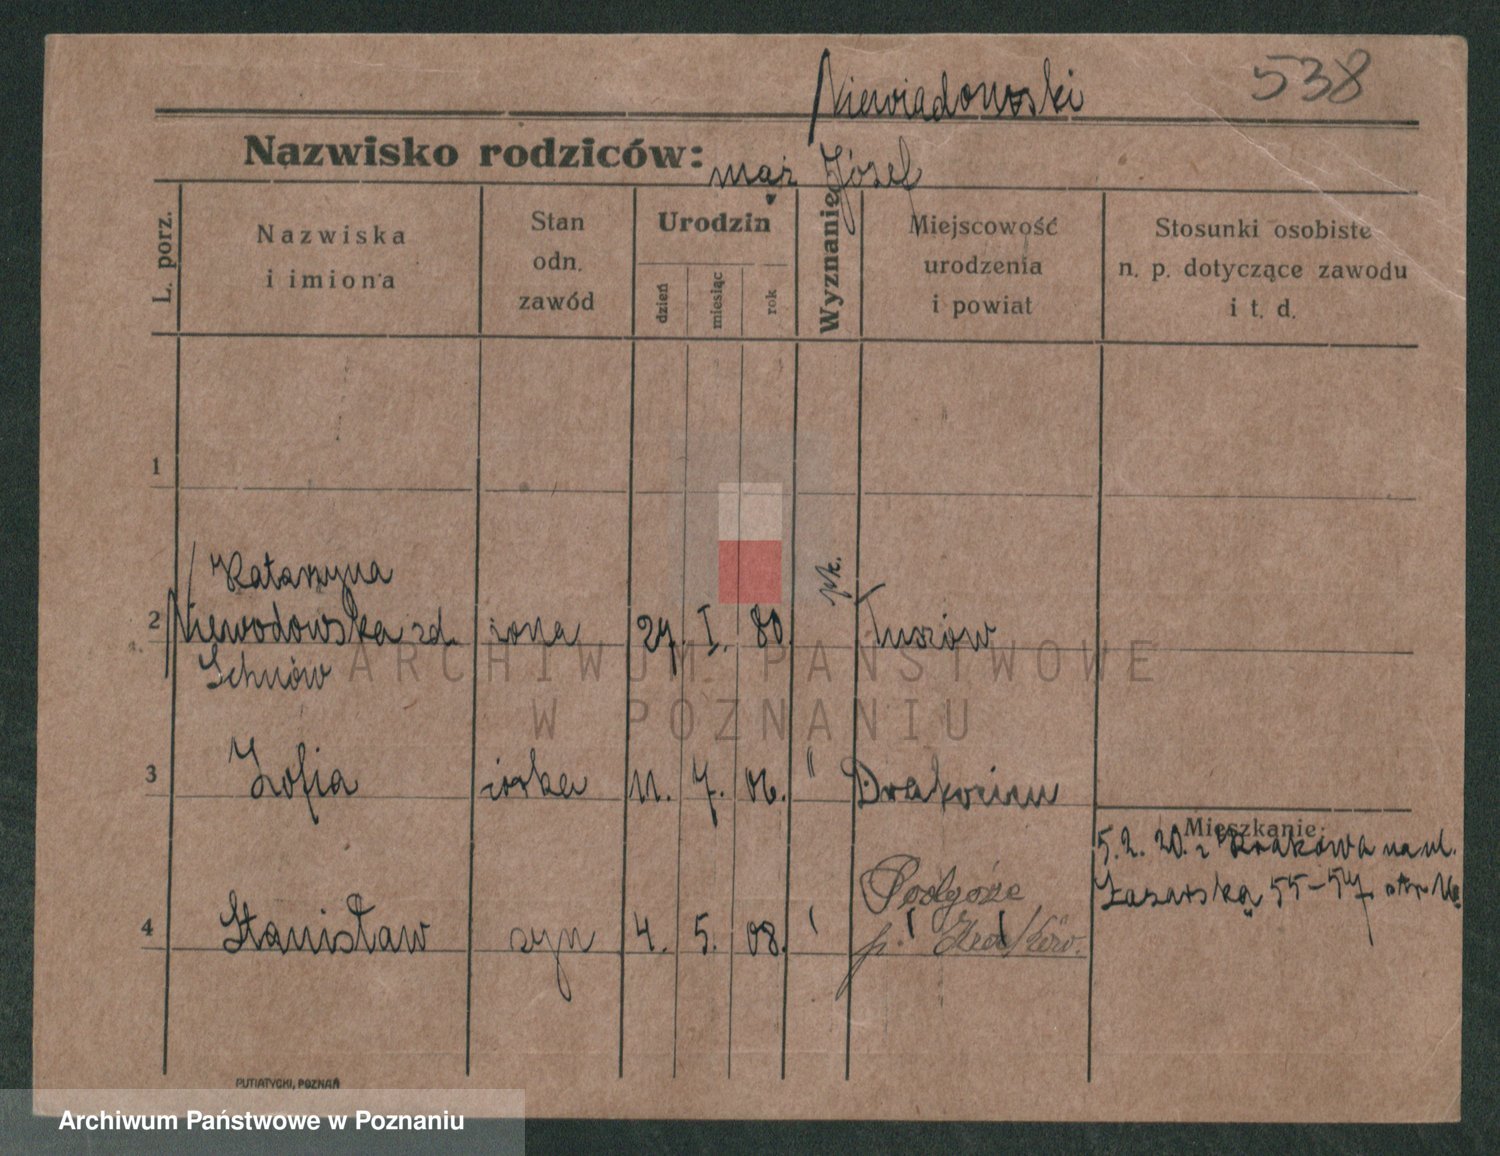 538
Niewiadomski
Nazwisko rodziców: mąż Józef
L. porz.
Nazwiska
i imiona
Stan
odn.
zawód
Urodzin
dzień
miesiąc
rok
Wyznanie
Miejscowość
urodzenia
i powiat
Stosunki osobiste
n. p. dotyczące zawodu
i t. d.
1
Katarzyna
2 Niewodowska zd. żona 29. I. 80. rk. Tuszów
Schnów
3 Zofia córka 11. 7. 06. " Drakociem
Mieszkanie:
5. 2. 20. z Krakowa na ul.
Podgóże
Łazarską 55-57
4 Stanisław syn 4. 5. 08. p. Krakow.
PUTIATYCKI, POZNAŃ
ARCHIWUM PAŃSTWOWE
W POZNANIU
Archiwum Państwowe w Poznaniu